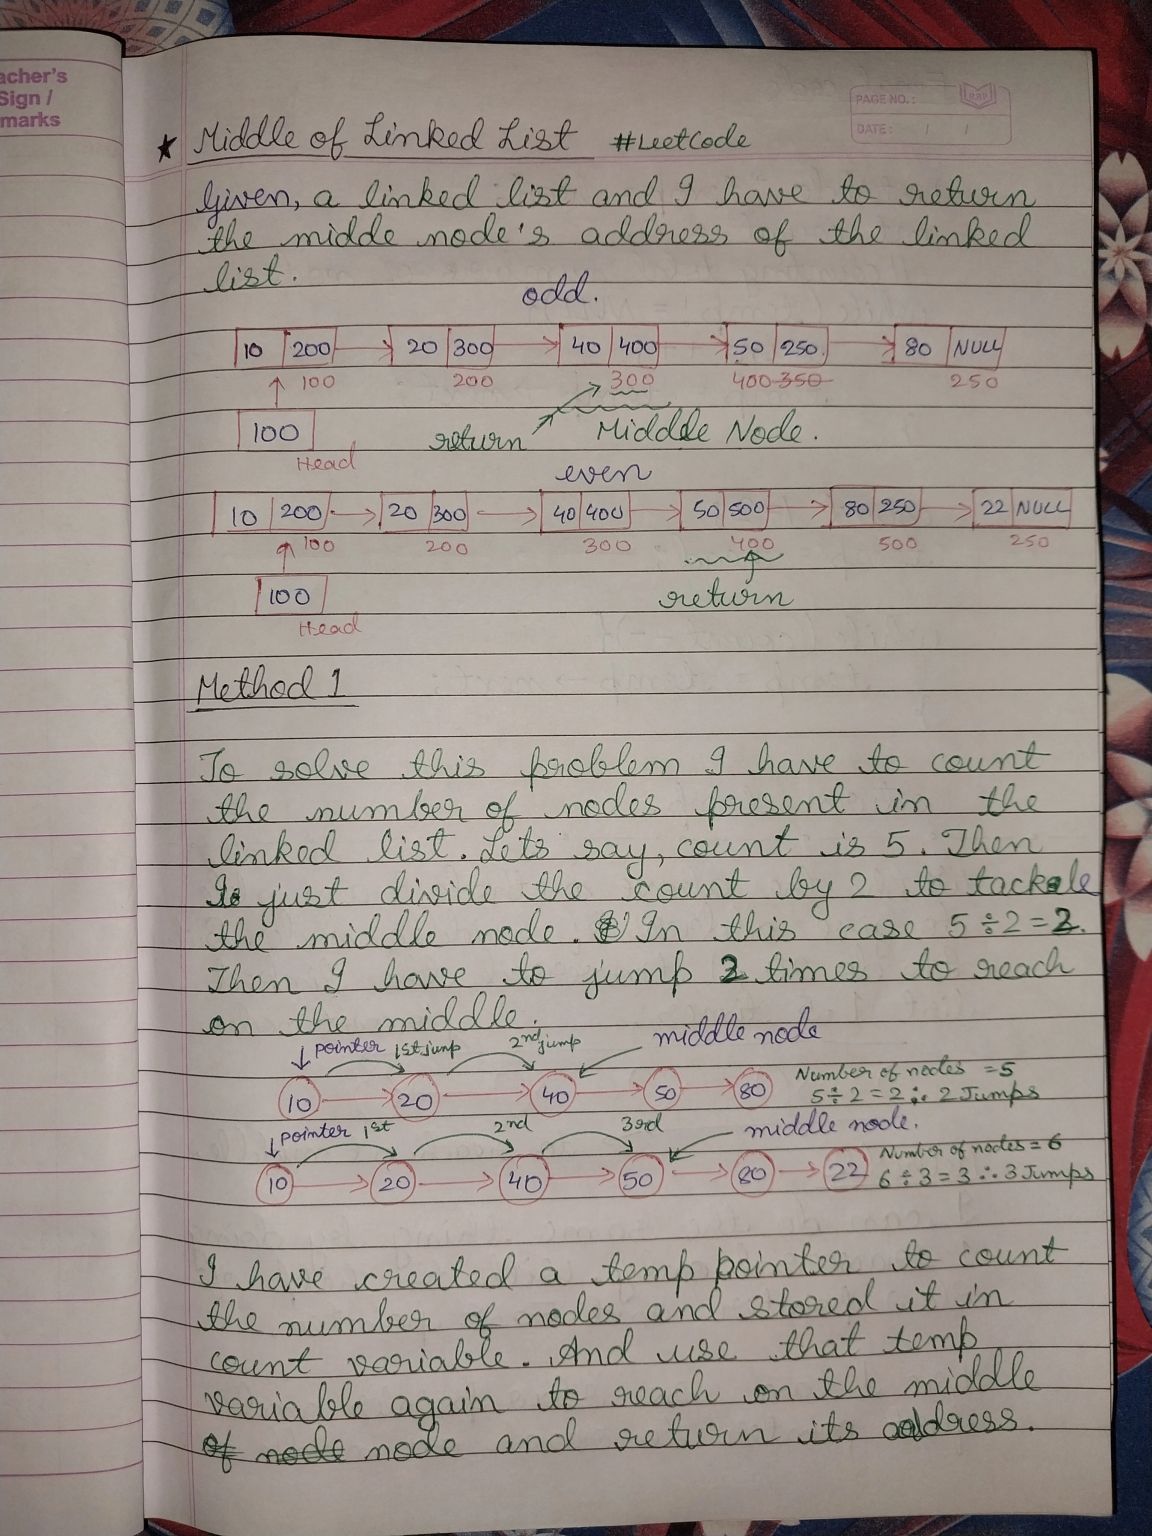 acher's
Sign /
marks
PAGE NO.:
DATE: / /
★ Middle of Linked List #LeetCode
Given, a linked list and I have to return
the midde node's address of the linked
list.
odd.
10 200 → 20 300 → 40 400 → 50 250 → 80 NULL
100 200 300 400 350 250
100 return Middle Node.
Head
even
10 200 → 20 300 → 40 400 → 50 500 → 80 250 → 22 NULL
100 200 300 400 500 250
100 return
Head
Method 1
To solve this problem I have to count
the number of nodes present in the
linked list. Lets say, count is 5. Then
just divide the count by 2 to tackle
the middle node. In this case 5÷2=2.
Then I have to jump 2 times to reach
on the middle.
pointer 1st jump 2nd jump middle node
10 → 20 → 40 → 50 → 80 Number of nodes = 5
5÷2=2 ∴ 2 Jumps
pointer 1st 2nd 3rd middle node.
10 → 20 → 40 → 50 → 80 → 22 Number of nodes = 6
6÷3=3 ∴ 3 Jumps
I have created a temp pointer to count
the number of nodes and stored it in
count variable. And use that temp
variable again to reach on the middle
of node node and return its address.